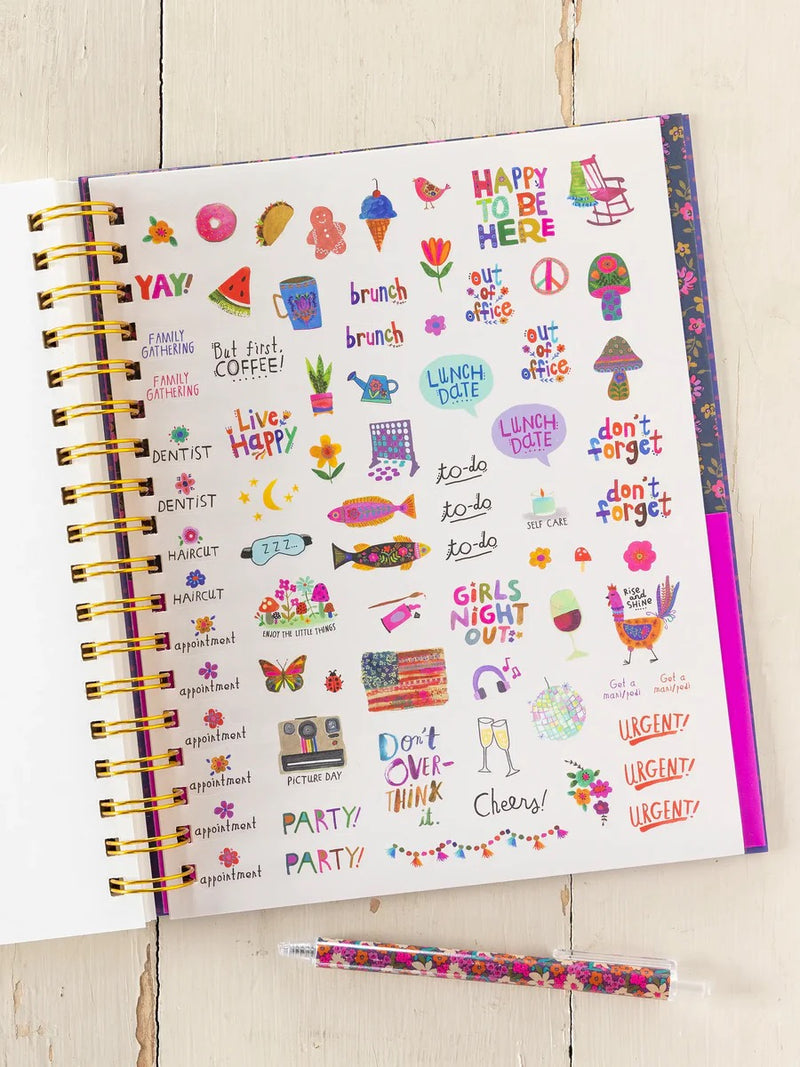 HAPPY
TO BE
HERE
YAY!
brunch
out
of
office
FAMILY
GATHERING
But first,
COFFEE!
brunch
out
of
office
FAMILY
GATHERING
LUNCH
DATE
Live
Happy
LUNCH
DATE
don't
forget
DENTIST
to-do
DENTIST
to-do
SELF CARE
don't
forget
HAIRCUT
ZZZ...
to-do
HAIRCUT
ENJOY THE LITTLE THINGS
GIRLS
NIGHT
OUT
RISE
and
SHINE
appointment
appointment
Get a
mani/pedi
Get a
mani/pedi
appointment
PICTURE DAY
Don't
OVER-
THINK
it.
URGENT!
appointment
URGENT!
appointment
PARTY!
Cheers!
URGENT!
appointment
PARTY!